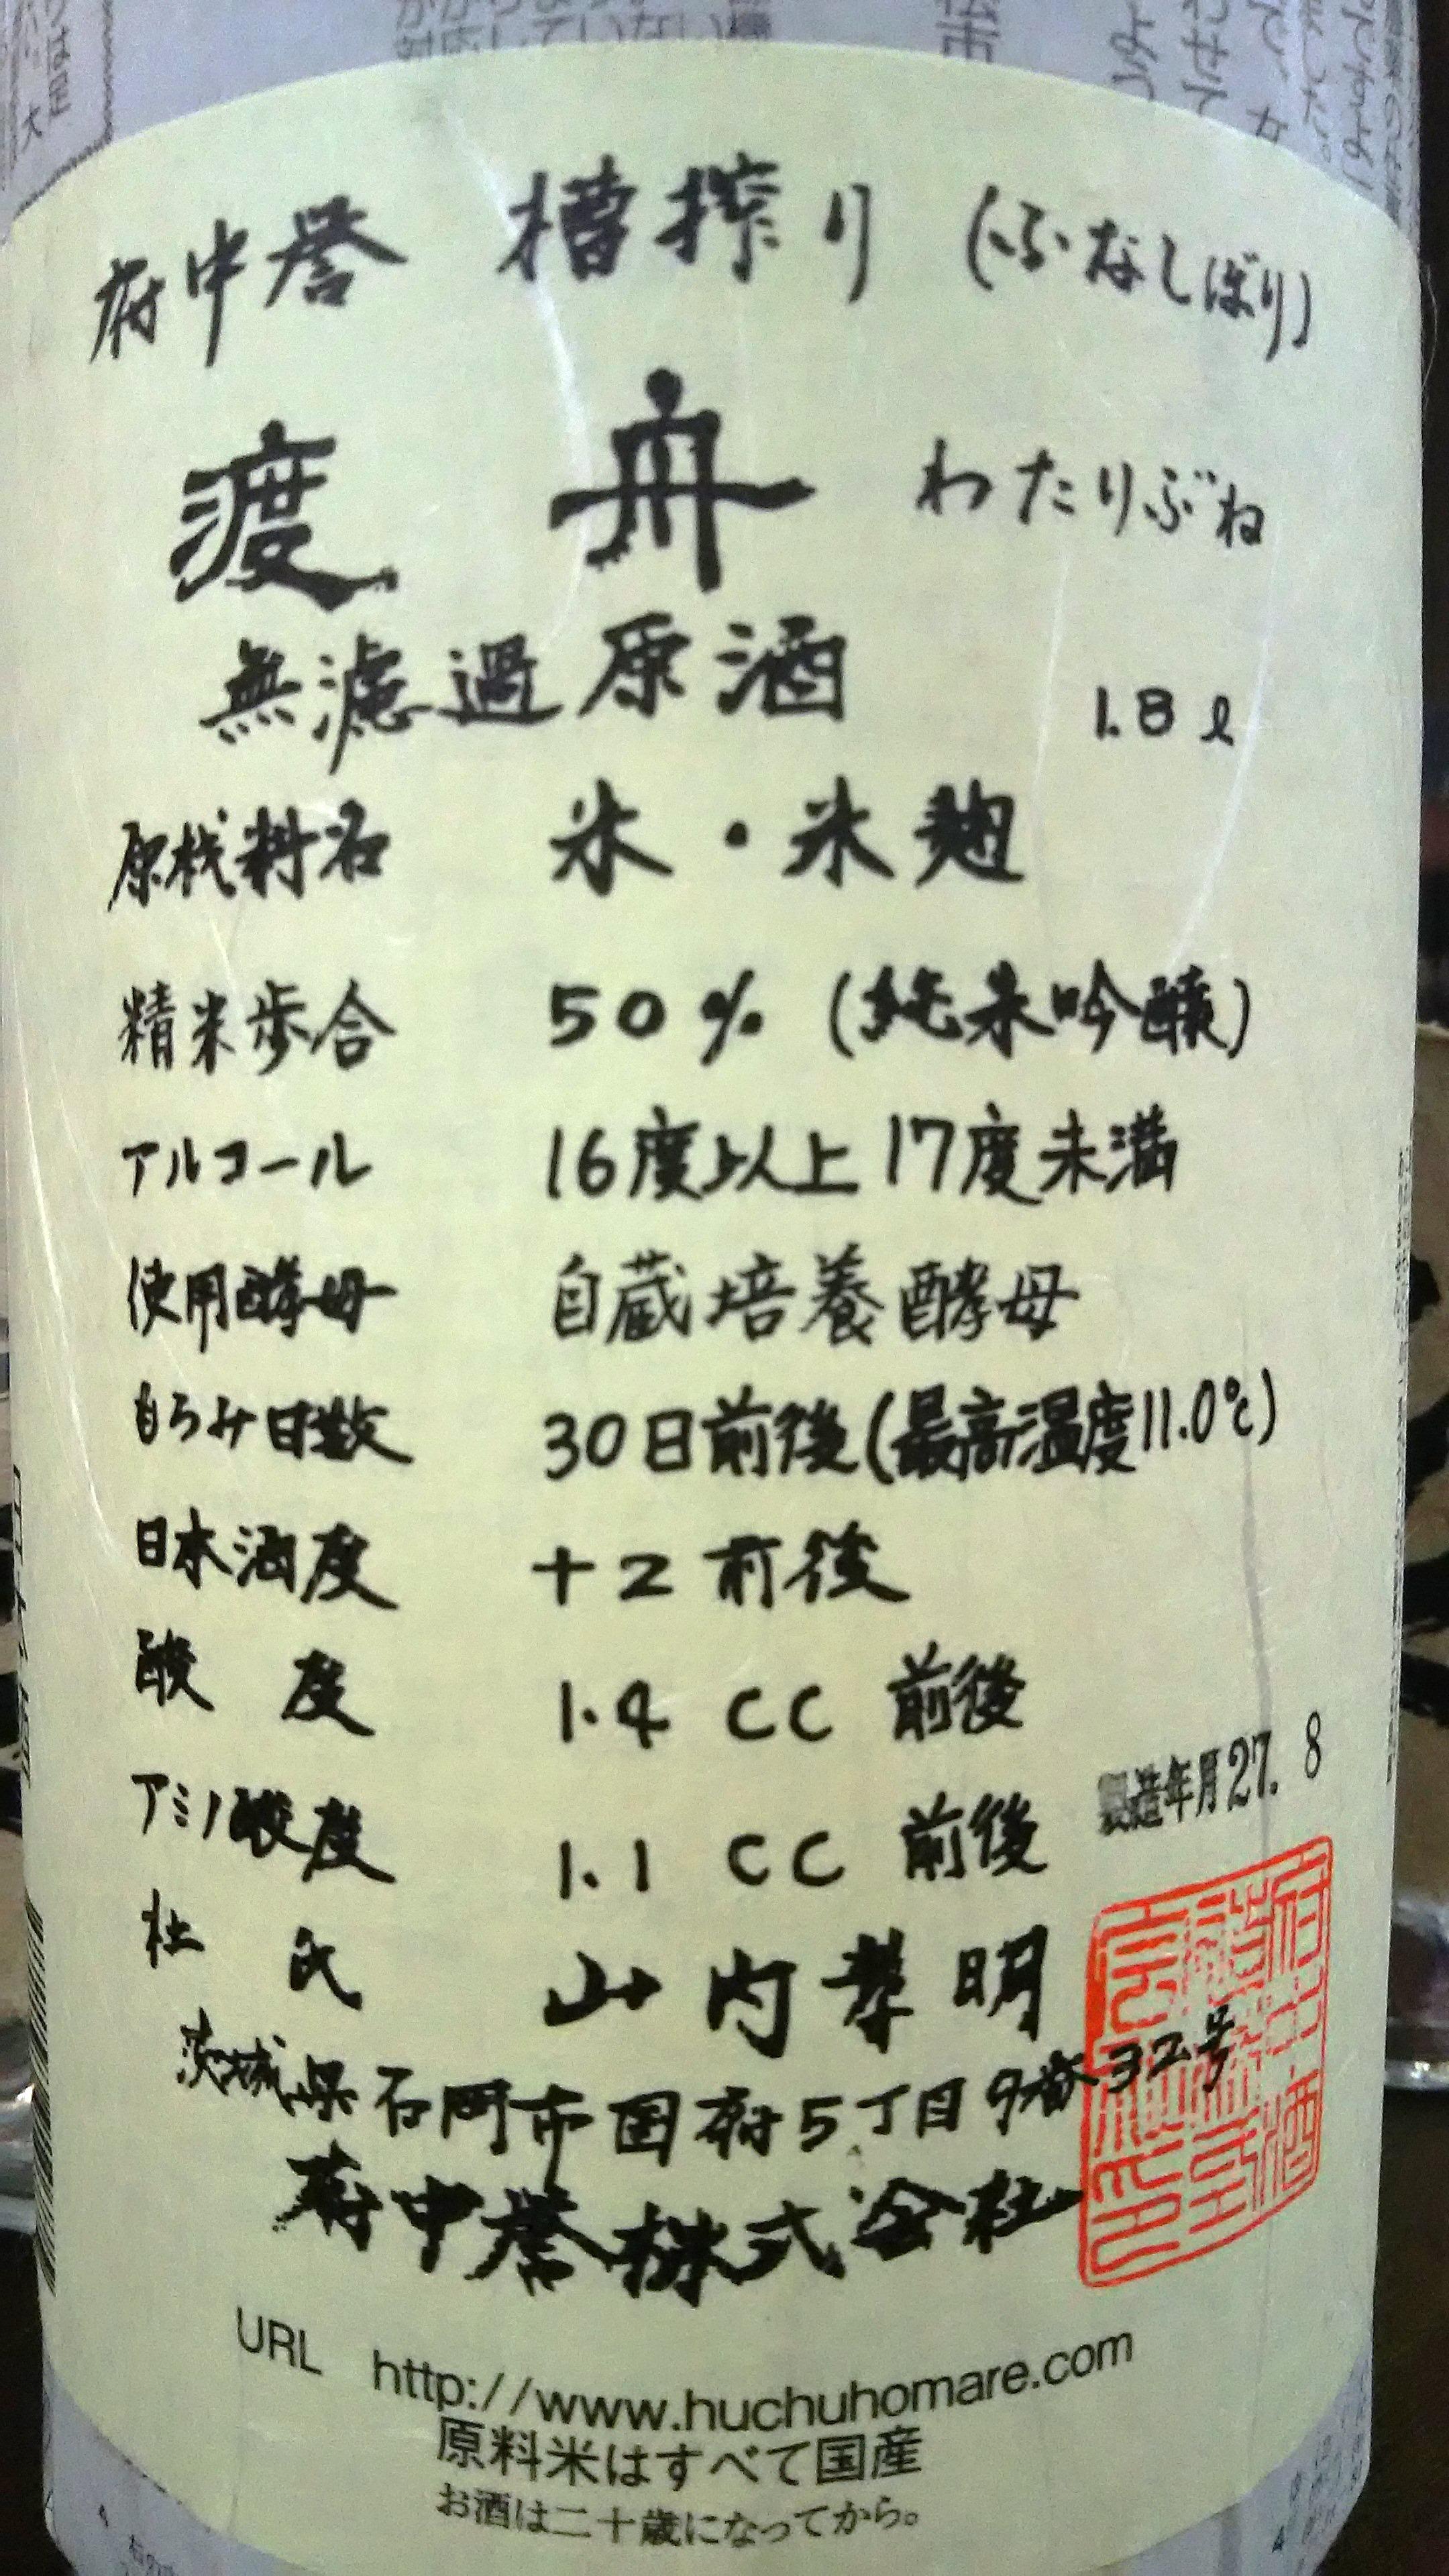 府中誉 槽搾り (ふなしぼり)
渡 舟 わたりぶね
無濾過原酒 1.8ℓ
原材料名 米・米麹
精米歩合 50% (純米吟醸)
アルコール 16度以上17度未満
使用酵母 自蔵培養酵母
もろみ日数 30日前後(最高温度11.0℃)
日本酒度 +2前後
酸度 1.4 CC 前後
製造年月27. 8
アミノ酸度 1.1 CC 前後
杜氏 山内孝明
茨城県石岡市国府5丁目9番32号
府中誉株式会社
URL http://www.huchuhomare.com
原料米はすべて国産
お酒は二十歳になってから。